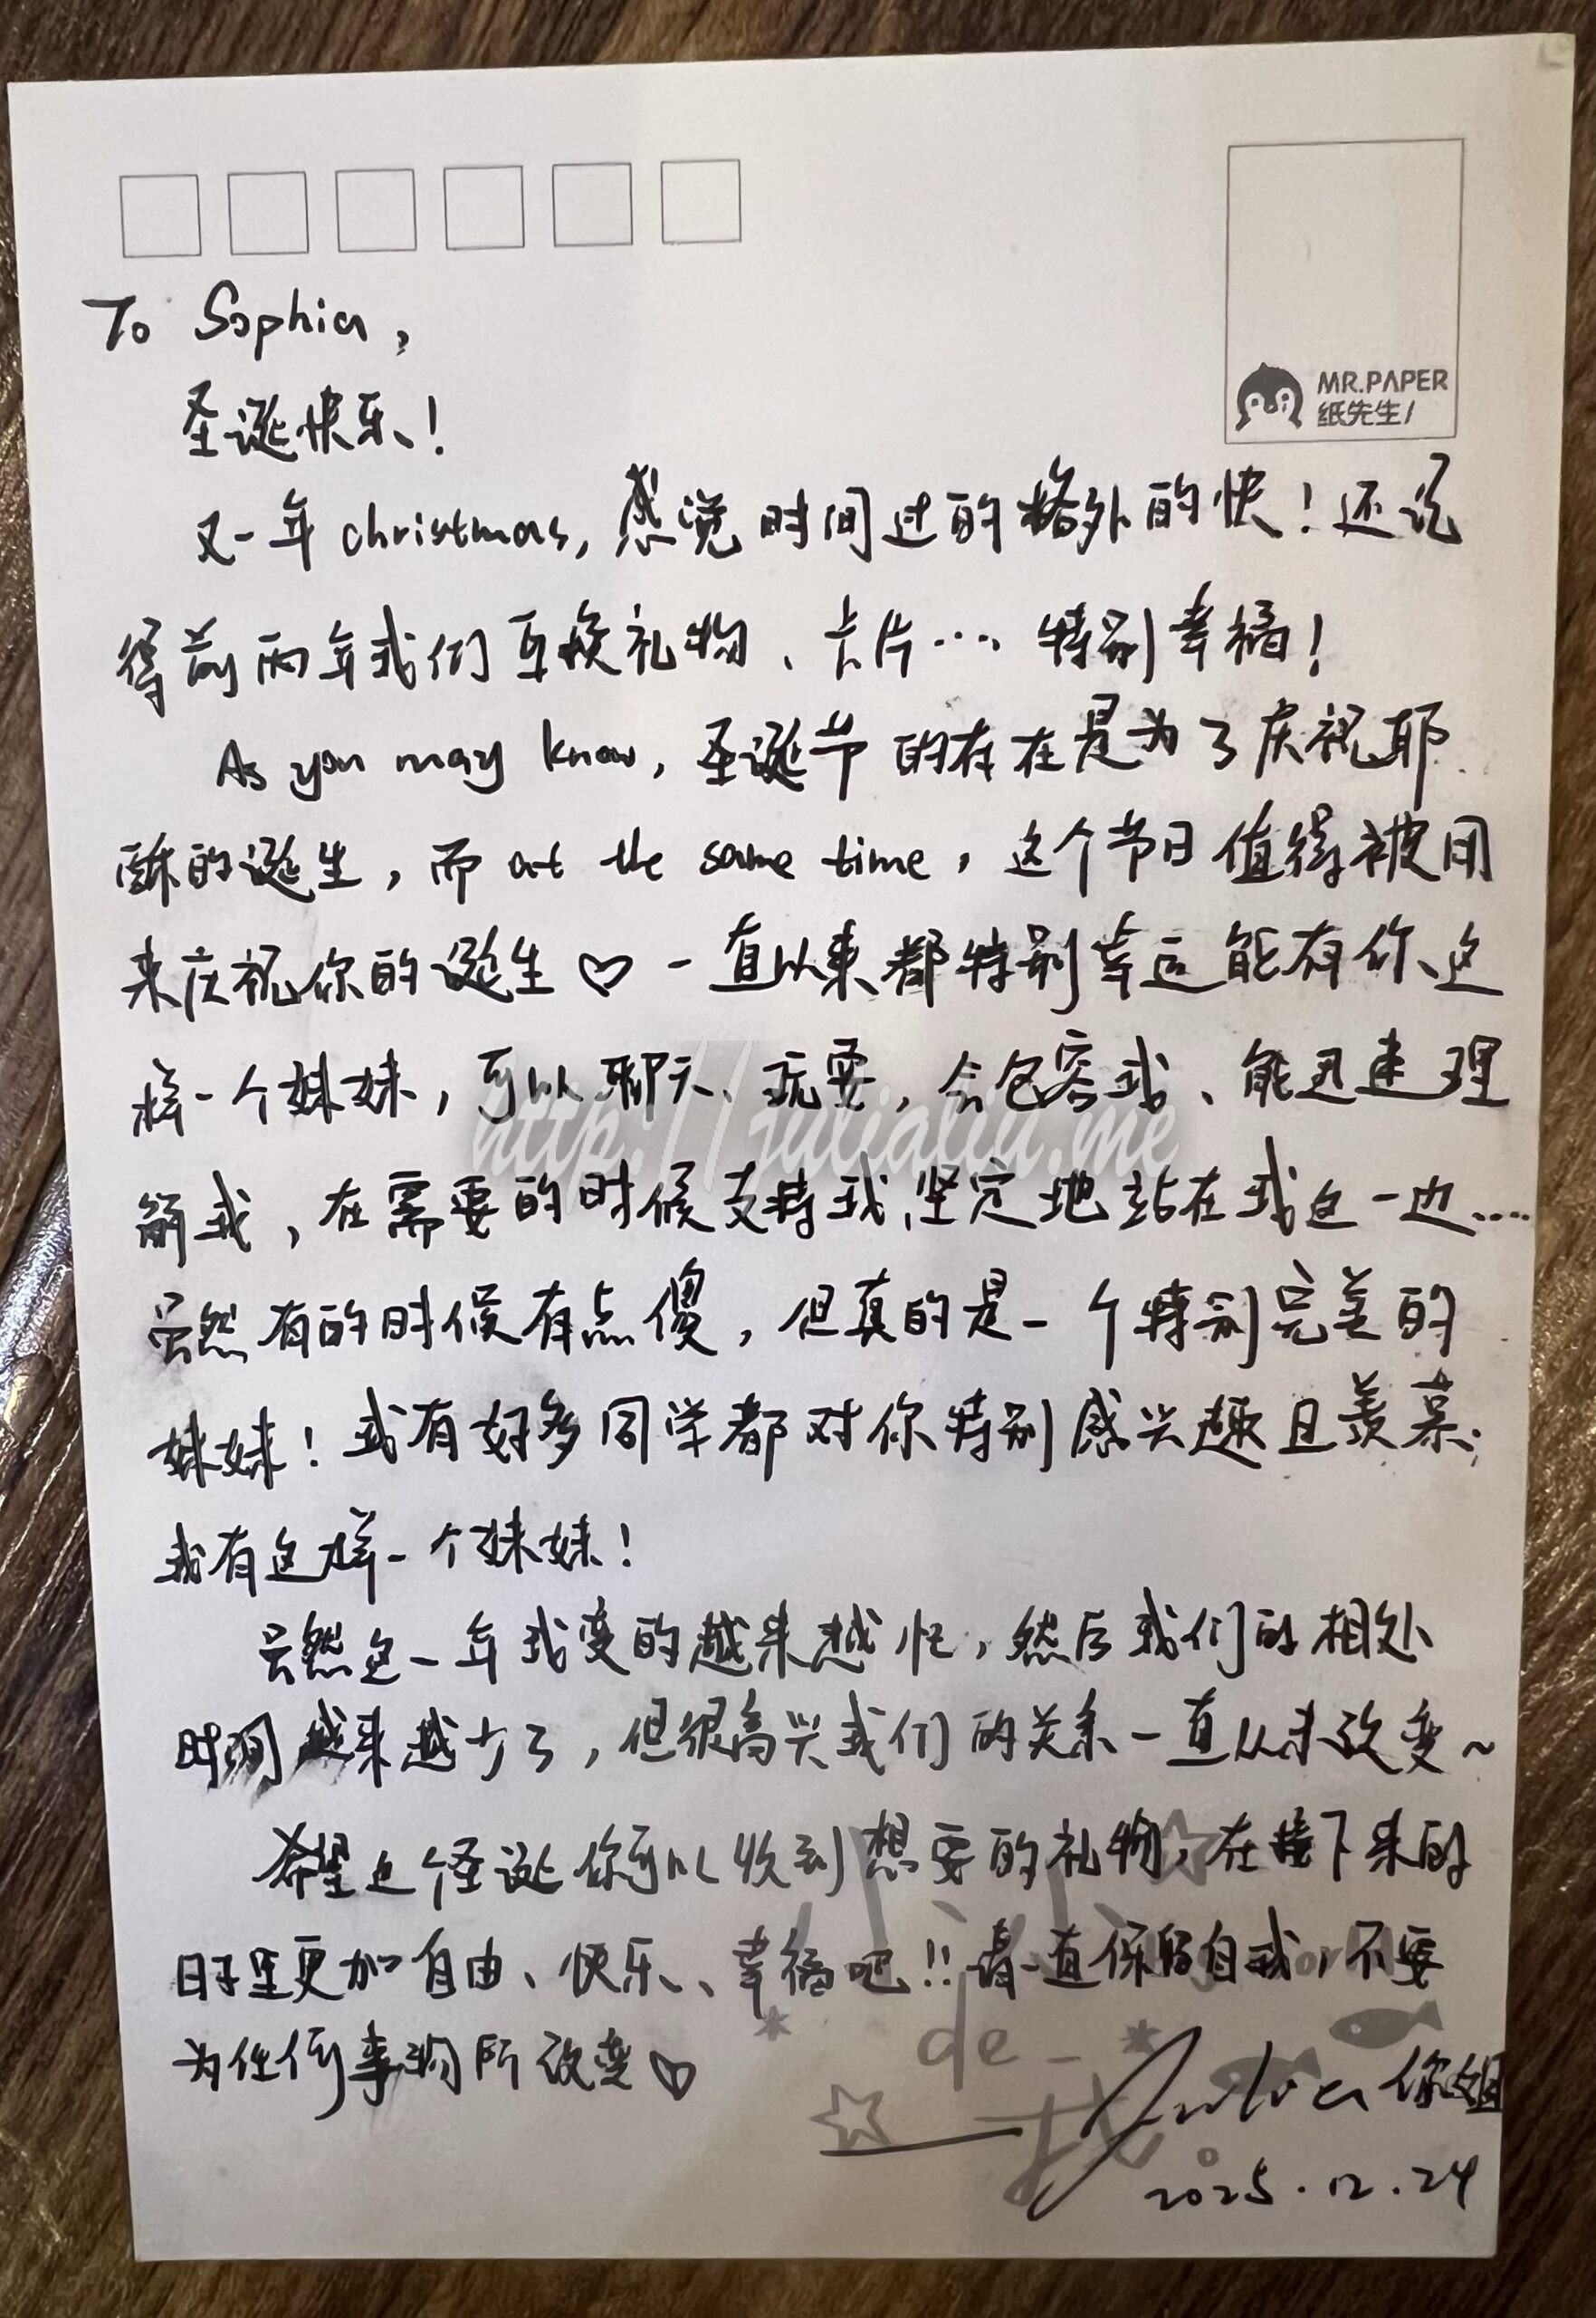 MR.PAPER
纸先生/
To Sophia,
圣诞快乐!
又一年christmas,感觉时间过的格外的快!还记
得前两年我们互换礼物、卡片…特别幸福!
As you may know,圣诞节的存在是为了庆祝耶
稣的诞生,而at the same time,这个节日值得被用
来庆祝你的诞生♡一直以来都特别幸运能有你这
样一个妹妹,可以聊天、玩耍,会包容我、能迅速理
解我,在需要的时候支持我、坚定地站在我这一边……
虽然有的时候有点傻,但真的是一个特别完美的
妹妹!我有好多同学都对你特别感兴趣且羡慕
我有这样一个妹妹!
虽然这一年我变的越来越忙,然后我们的相处
时间越来越少了,但很高兴我们的关系一直从未改变~
希望这个圣诞你可以收到想要的礼物,在接下来的
日子里更加自由、快乐、幸福吧!!请一直保留自我,不要
为任何事物所改变♡
——Julia 你姐
2025.12.24
de
我
http://julialiu.me